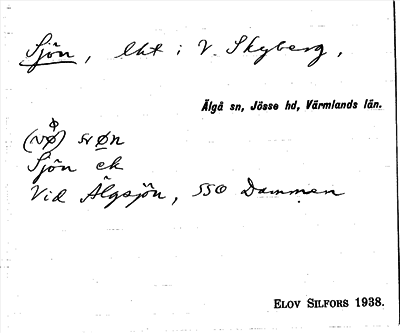 Sjön, lht i V. Skyberg,
Älgå sn, Jösse hd, Värmlands län.
Sjön ek
Vid Älgsjön, SSO Dammen
ELOV SILFORS 1938.